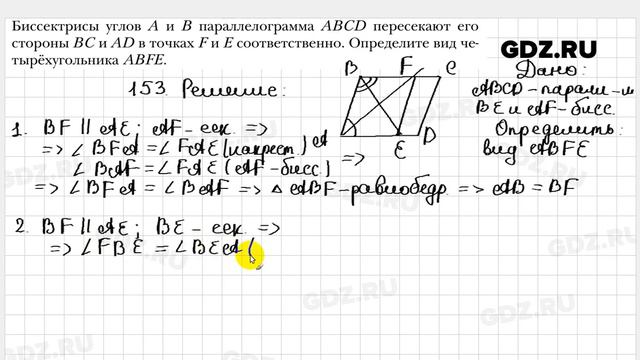 Биссектрисы углов A и B параллелограмма ABCD пересекают его
стороны BC и AD в точках F и E соответственно. Определите вид че-
тырёхугольника ABFE.
GDZ.RU
153. Решение:
B F C
A E D
Дано:
ABCD – парал-м
BE и AF – бисс.
Определить:
вид ABFE
1. BF || AE; AF – сек. =>
=> ∠BFA = ∠FAE (накрест.)
∠BAF = ∠FAE (AF – бисс.) =>
=> ∠BFA = ∠BAF => △ABF – равнобедр => AB = BF
2. BF || AE; BE – сек. =>
=> ∠FBE = ∠BEA (